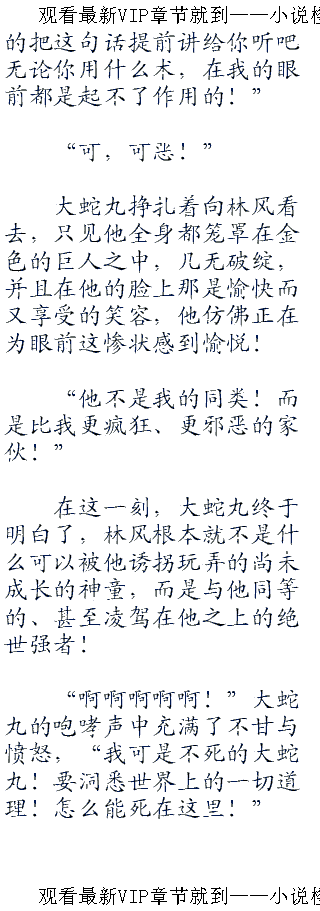 观看最新VIP章节就到——小说检
的把这句话提前讲给你听吧
无论你用什么术，在我的眼
前都是起不了作用的！”
“可，可恶！”
大蛇丸挣扎着向林风看
去，只见他全身都笼罩在金
色的巨人之中，几无破绽，
并且在他的脸上那是愉快而
又享受的笑容，他仿佛正在
为眼前这惨状感到愉悦！
“他不是我的同类！而
是比我更疯狂、更邪恶的家
伙！”
在这一刻，大蛇丸终于
明白了，林风根本就不是什
么可以被他诱拐玩弄的尚未
成长的神童，而是与他同等
的、甚至凌驾在他之上的绝
世强者！
“啊啊啊啊啊！”大蛇
丸的咆哮声中充满了不甘与
愤怒，“我可是不死的大蛇
丸！要洞悉世界上的一切道
理！怎么能死在这里！”
观看最新VIP章节就到——小说检